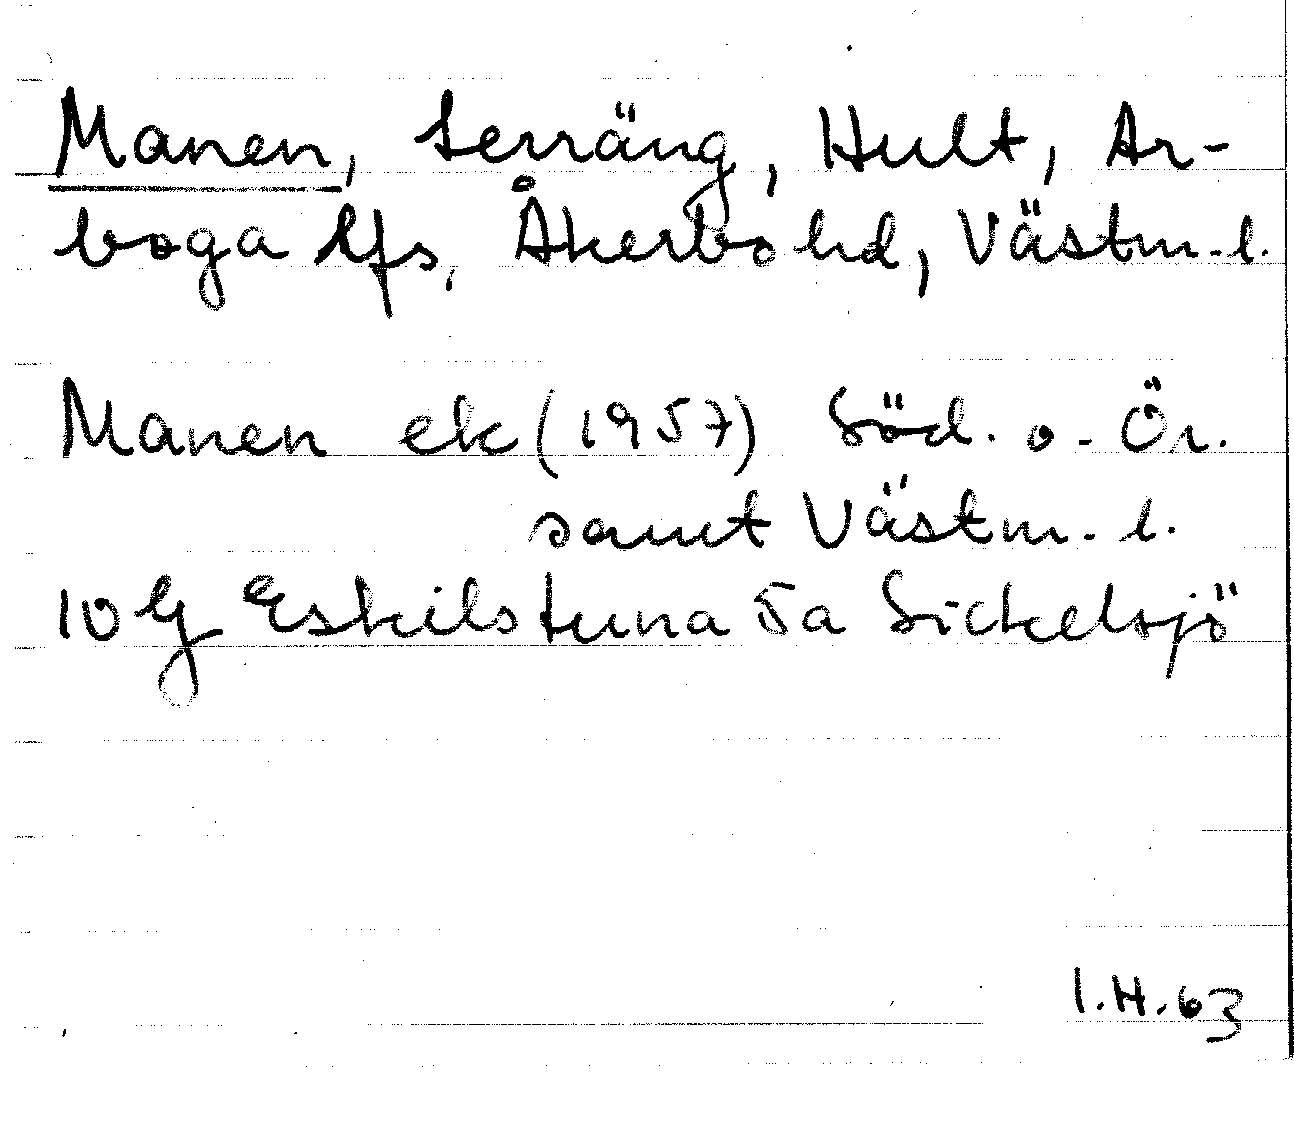 Manen, terräng, Hult, Ar-
boga lfs, Åkerbo hd, Västm.l.
Manen ek (1957) Söd. o. Ör.
samt Västm. l.
10 G Eskilstuna 5a Sickelsjö
I.H. 63